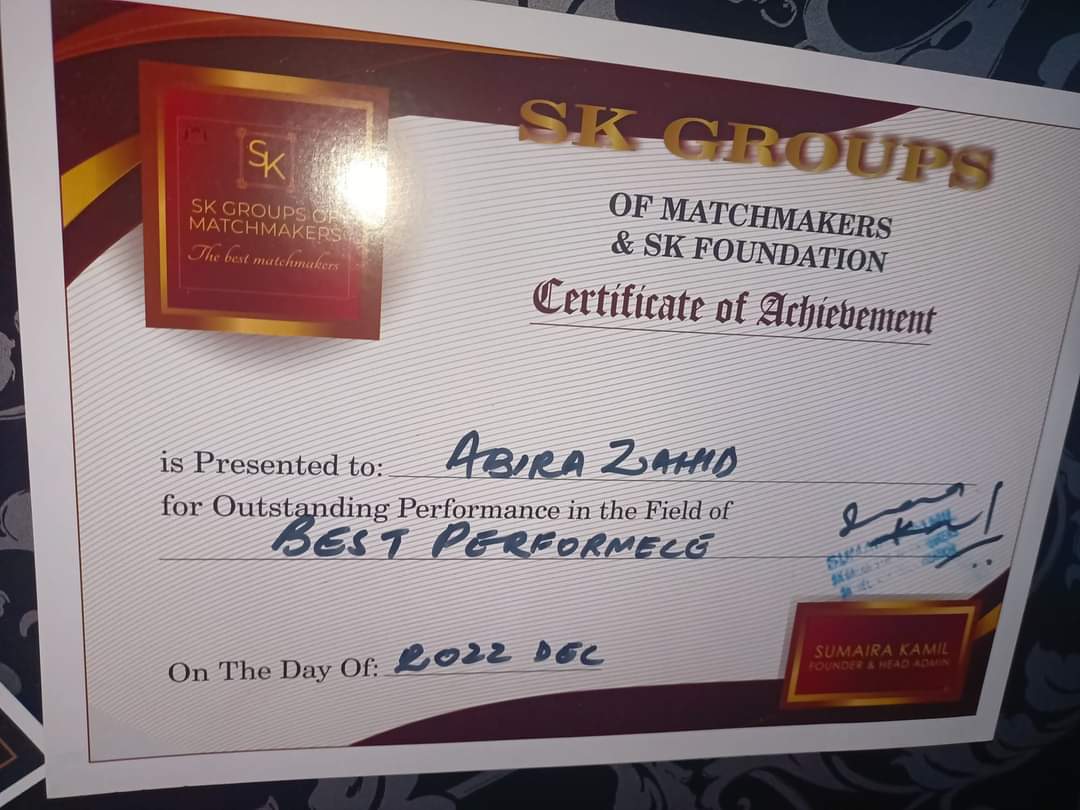 SK
SK GROUPS OF
MATCHMAKERS
The best matchmakers
SK GROUPS
OF MATCHMAKERS
& SK FOUNDATION
Certificate of Achievement
is Presented to: ABIRA ZAHID
for Outstanding Performance in the Field of
BEST PERFORMECE
On The Day Of: 2022 DEC
SUMAIRA KAMIL
FOUNDER & HEAD ADMIN